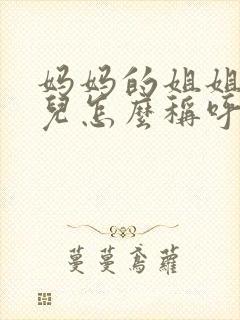 妈妈的姐姐
兒怎麼稱呼
蔓蔓鳶蘿